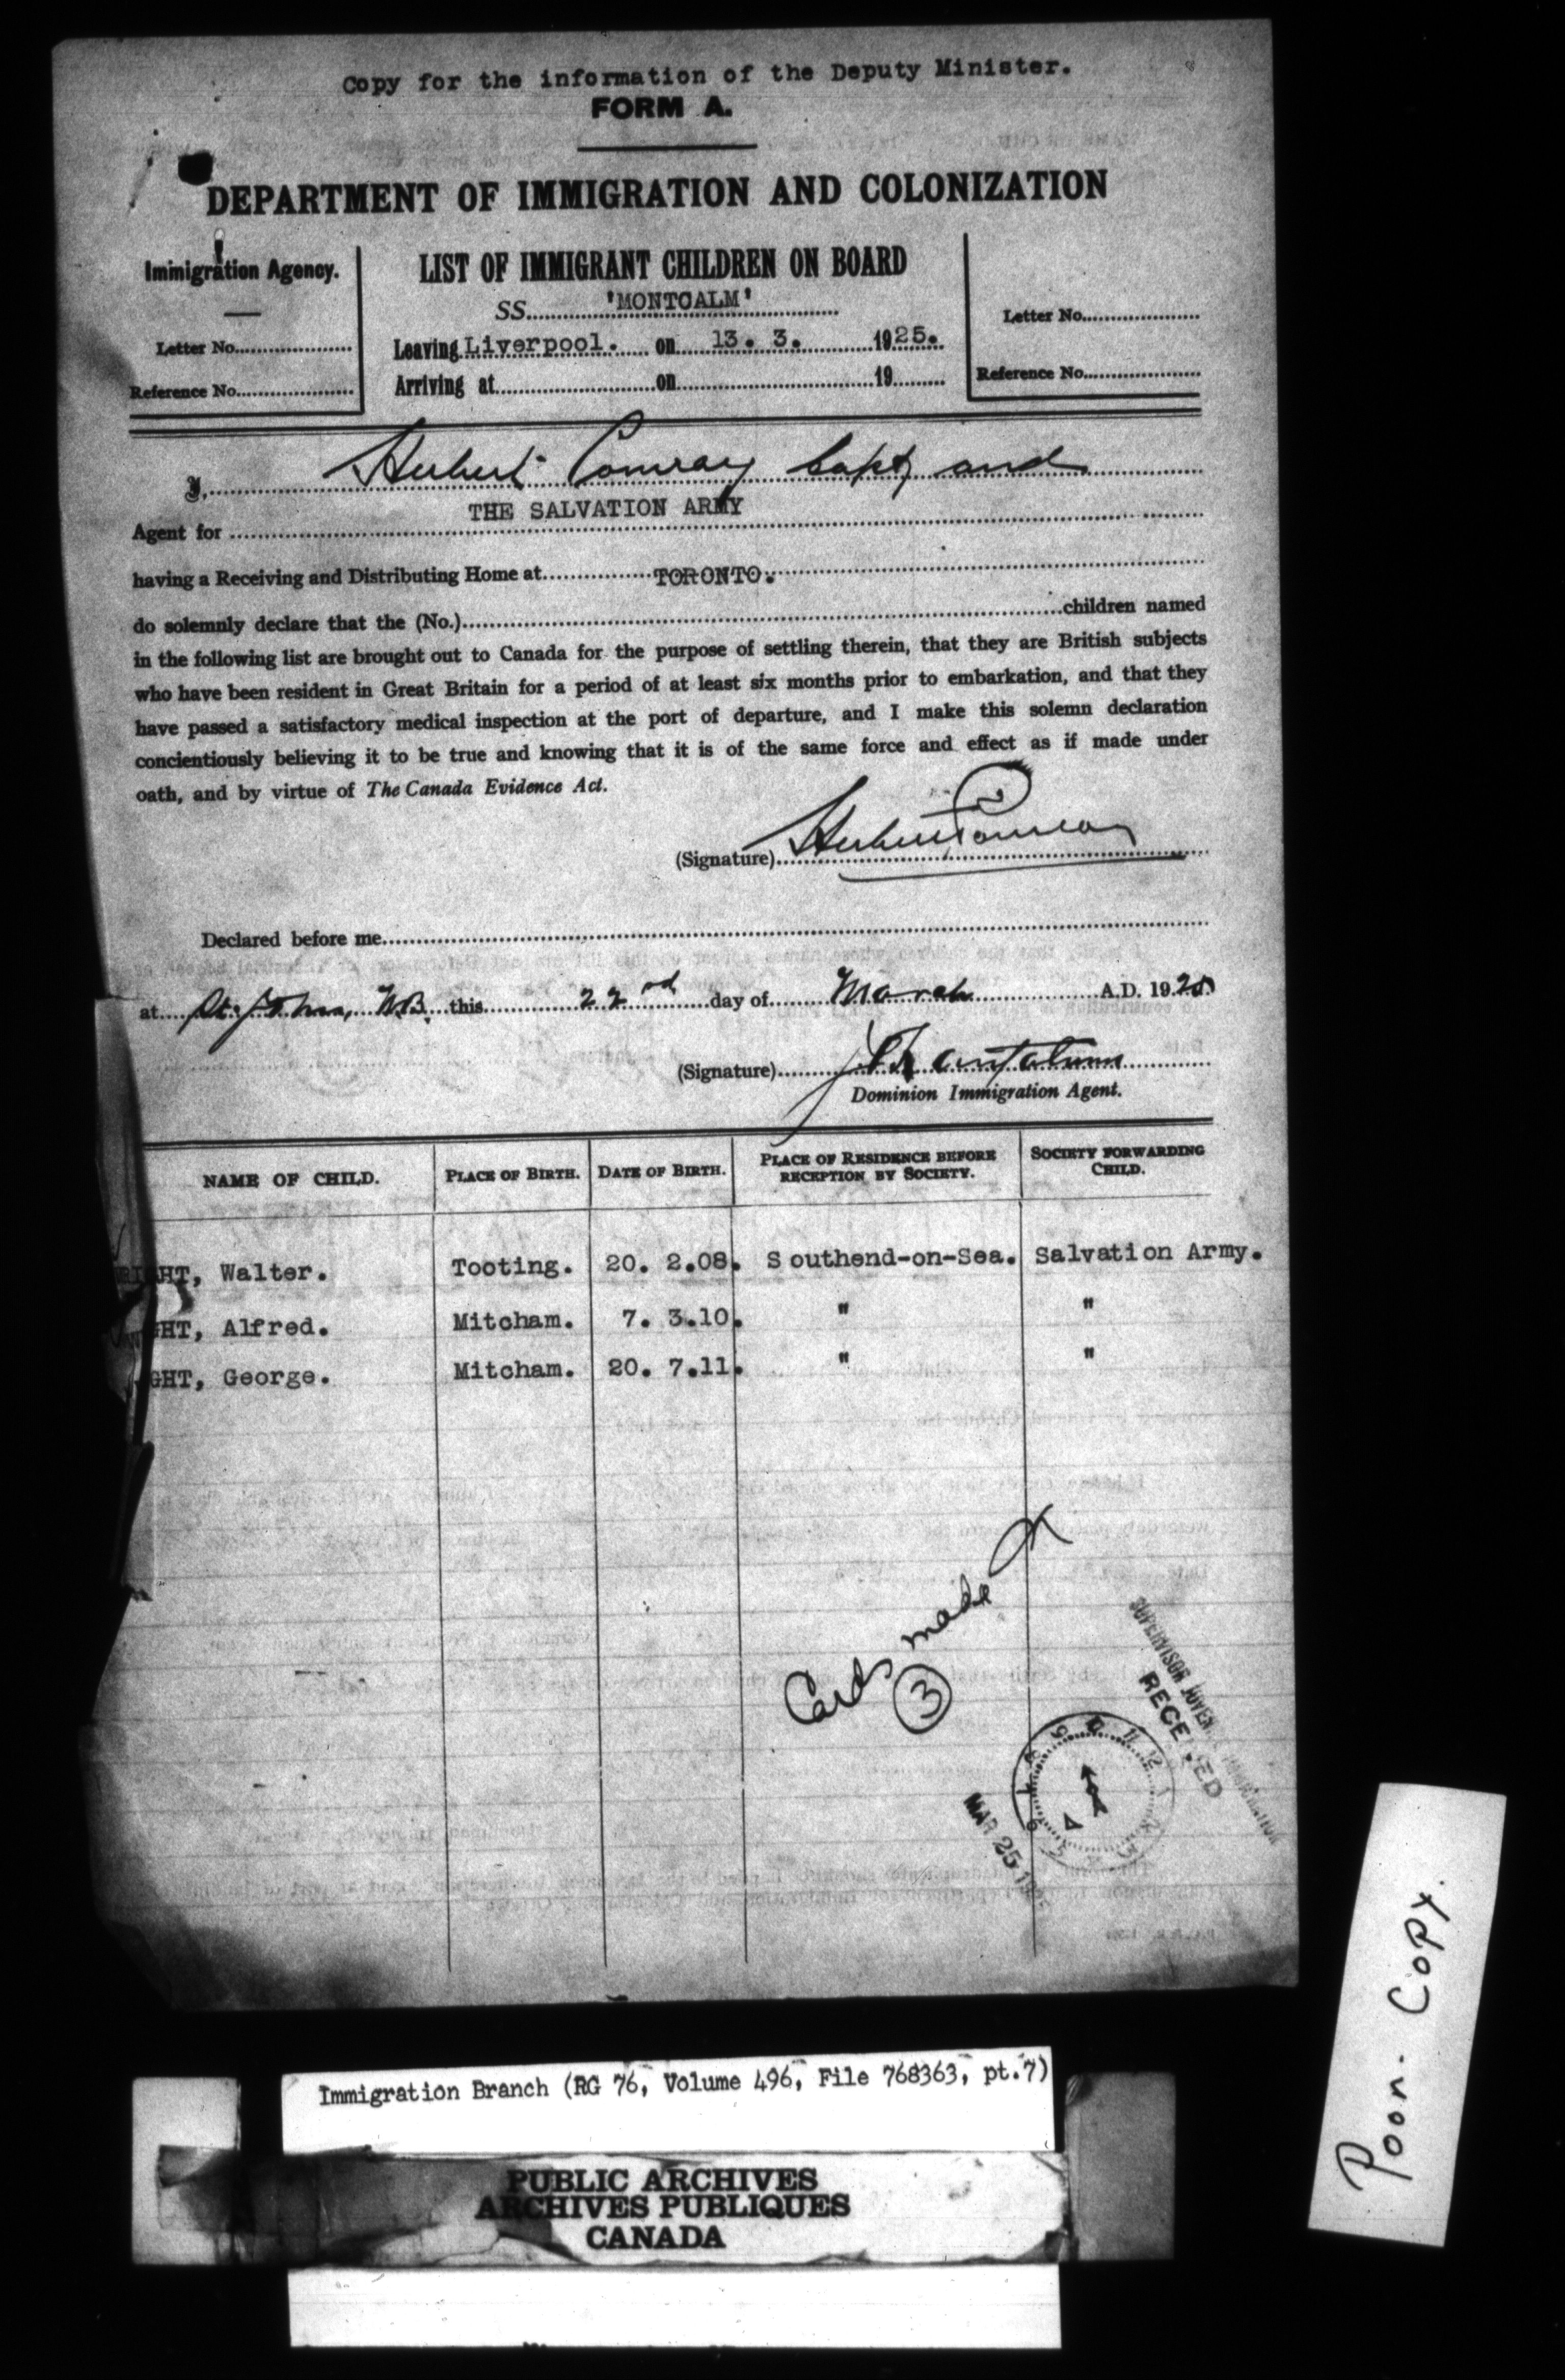 Copy for the information of the Deputy Minister.
FORM A.
DEPARTMENT OF IMMIGRATION AND COLONIZATION
Immigration Agency.
Letter No.
Reference No.
LIST OF IMMIGRANT CHILDREN ON BOARD
SS. 'MONTCALM'
Leaving Liverpool. on 13. 3. 1925.
Arriving at on 19
Letter No.
Reference No.
I, Herbert Comray Capt and
Agent for THE SALVATION ARMY
having a Receiving and Distributing Home at TORONTO.
do solemnly declare that the (No.) children named
in the following list are brought out to Canada for the purpose of settling therein, that they are British subjects
who have been resident in Great Britain for a period of at least six months prior to embarkation, and that they
have passed a satisfactory medical inspection at the port of departure, and I make this solemn declaration
concientiously believing it to be true and knowing that it is of the same force and effect as if made under
oath, and by virtue of The Canada Evidence Act.
(Signature) Herbert
Declared before me
at St. John, N.B. this 22nd day of March A.D. 1925
(Signature)
Dominion Immigration Agent.
NAME OF CHILD. PLACE OF BIRTH. DATE OF BIRTH. PLACE OF RESIDENCE BEFORE RECEPTION BY SOCIETY. SOCIETY FORWARDING CHILD.
RIGHT, Walter. Tooting. 20. 2.08. Southend-on-Sea. Salvation Army.
GHT, Alfred. Mitcham. 7. 3.10. " "
GHT, George. Mitcham. 20. 7.11. " "
Cards made
3
SUPERVISOR JUVENILE IMMIGRATION
RECEIVED
MAR 25 19
Immigration Branch (RG 76, Volume 496, File 768363, pt.7)
PUBLIC ARCHIVES
ARCHIVES PUBLIQUES
CANADA
Poor Copy.